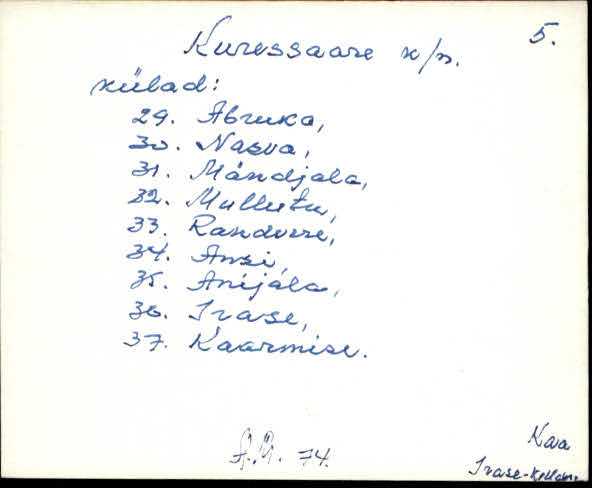 5.
Kuressaare k/n.
külad:
29. Abruka,
30. Nasva,
31. Mändjala,
32. Mullutu,
33. Randvere,
34. Ansi,
35. Anijala,
36. Irase,
37. Kaarmise.
74.
Kaa
Irase-